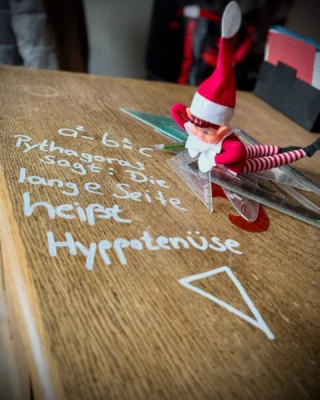 a²-b²c
Pythagoras
sagt: Die
lange Seite
heißt
Hyppotenüse